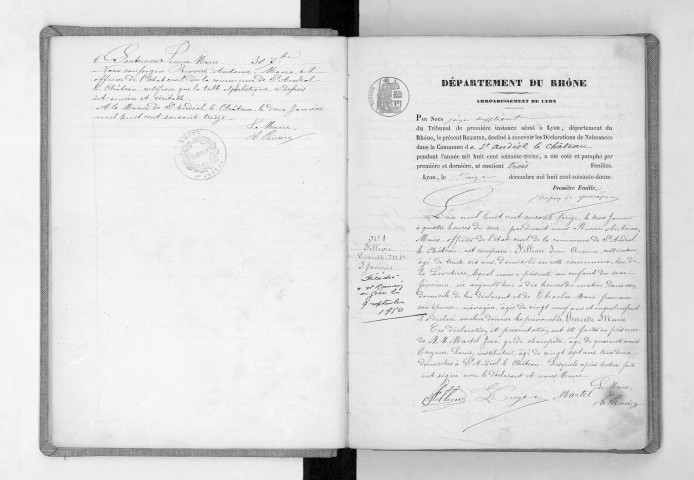 6 Marie 30 7bre
Nous soussigné Antoine, Maire et
officier de l'état civil de la commune de St Andéol
le Château certifions que la table alphabétique ci dessus
est sincère et véritable
A la Mairie de St Andéol le Château le deux Janvier
mil huit cent soixante treize
Le Maire
DÉPARTEMENT DU RHÔNE
ARRONDISSEMENT DE LYON
PAR NOUS juge suppléant
du Tribunal de première instance séant à Lyon, département du
Rhône, le présent REGISTRE, destiné à recevoir les Déclarations de Naissances
dans la Commune de St Andéol le Château
pendant l'année mil huit cent soixante-treize, a été coté et paraphé par
première et dernière, et contient trois Feuilles.
Lyon, le décembre mil huit cent soixante-douze.
Première Feuille,
No 1
Fillion
Pierrette Mie
3 Janvier
Décédée
à St Romain
en Gier le
septembre
1950
L'an mil huit cent soixante treize, le trois Janvier
à quatre heures du soir, par devant nous Antoine,
Maire, officier de l'état civil de la commune de St Andéol
le Château, est comparu Fillion
âgé de trente six ans, domicilié en cette commune, lieu de
lequel nous a présenté un enfant du sexe
féminin, né aujourd'hui à dix heures du matin dans son
domicile de lui déclarant et de Marie
son épouse, ménagère, âgée de vingt neuf ans et auquel enfant
il a déclaré vouloir donner les prénoms de Pierrette Marie
Ces déclaration et présentation ont été faites en présence
de M.M. Martel Jean, garde champêtre, âgé de quarante ans
Louis, instituteur, âgé de vingt sept ans tous deux
domiciliés à St Andéol le Château. Lesquels après lecture faite
ont signé avec le déclarant et nous Maire
Le Maire
Fillion Martel